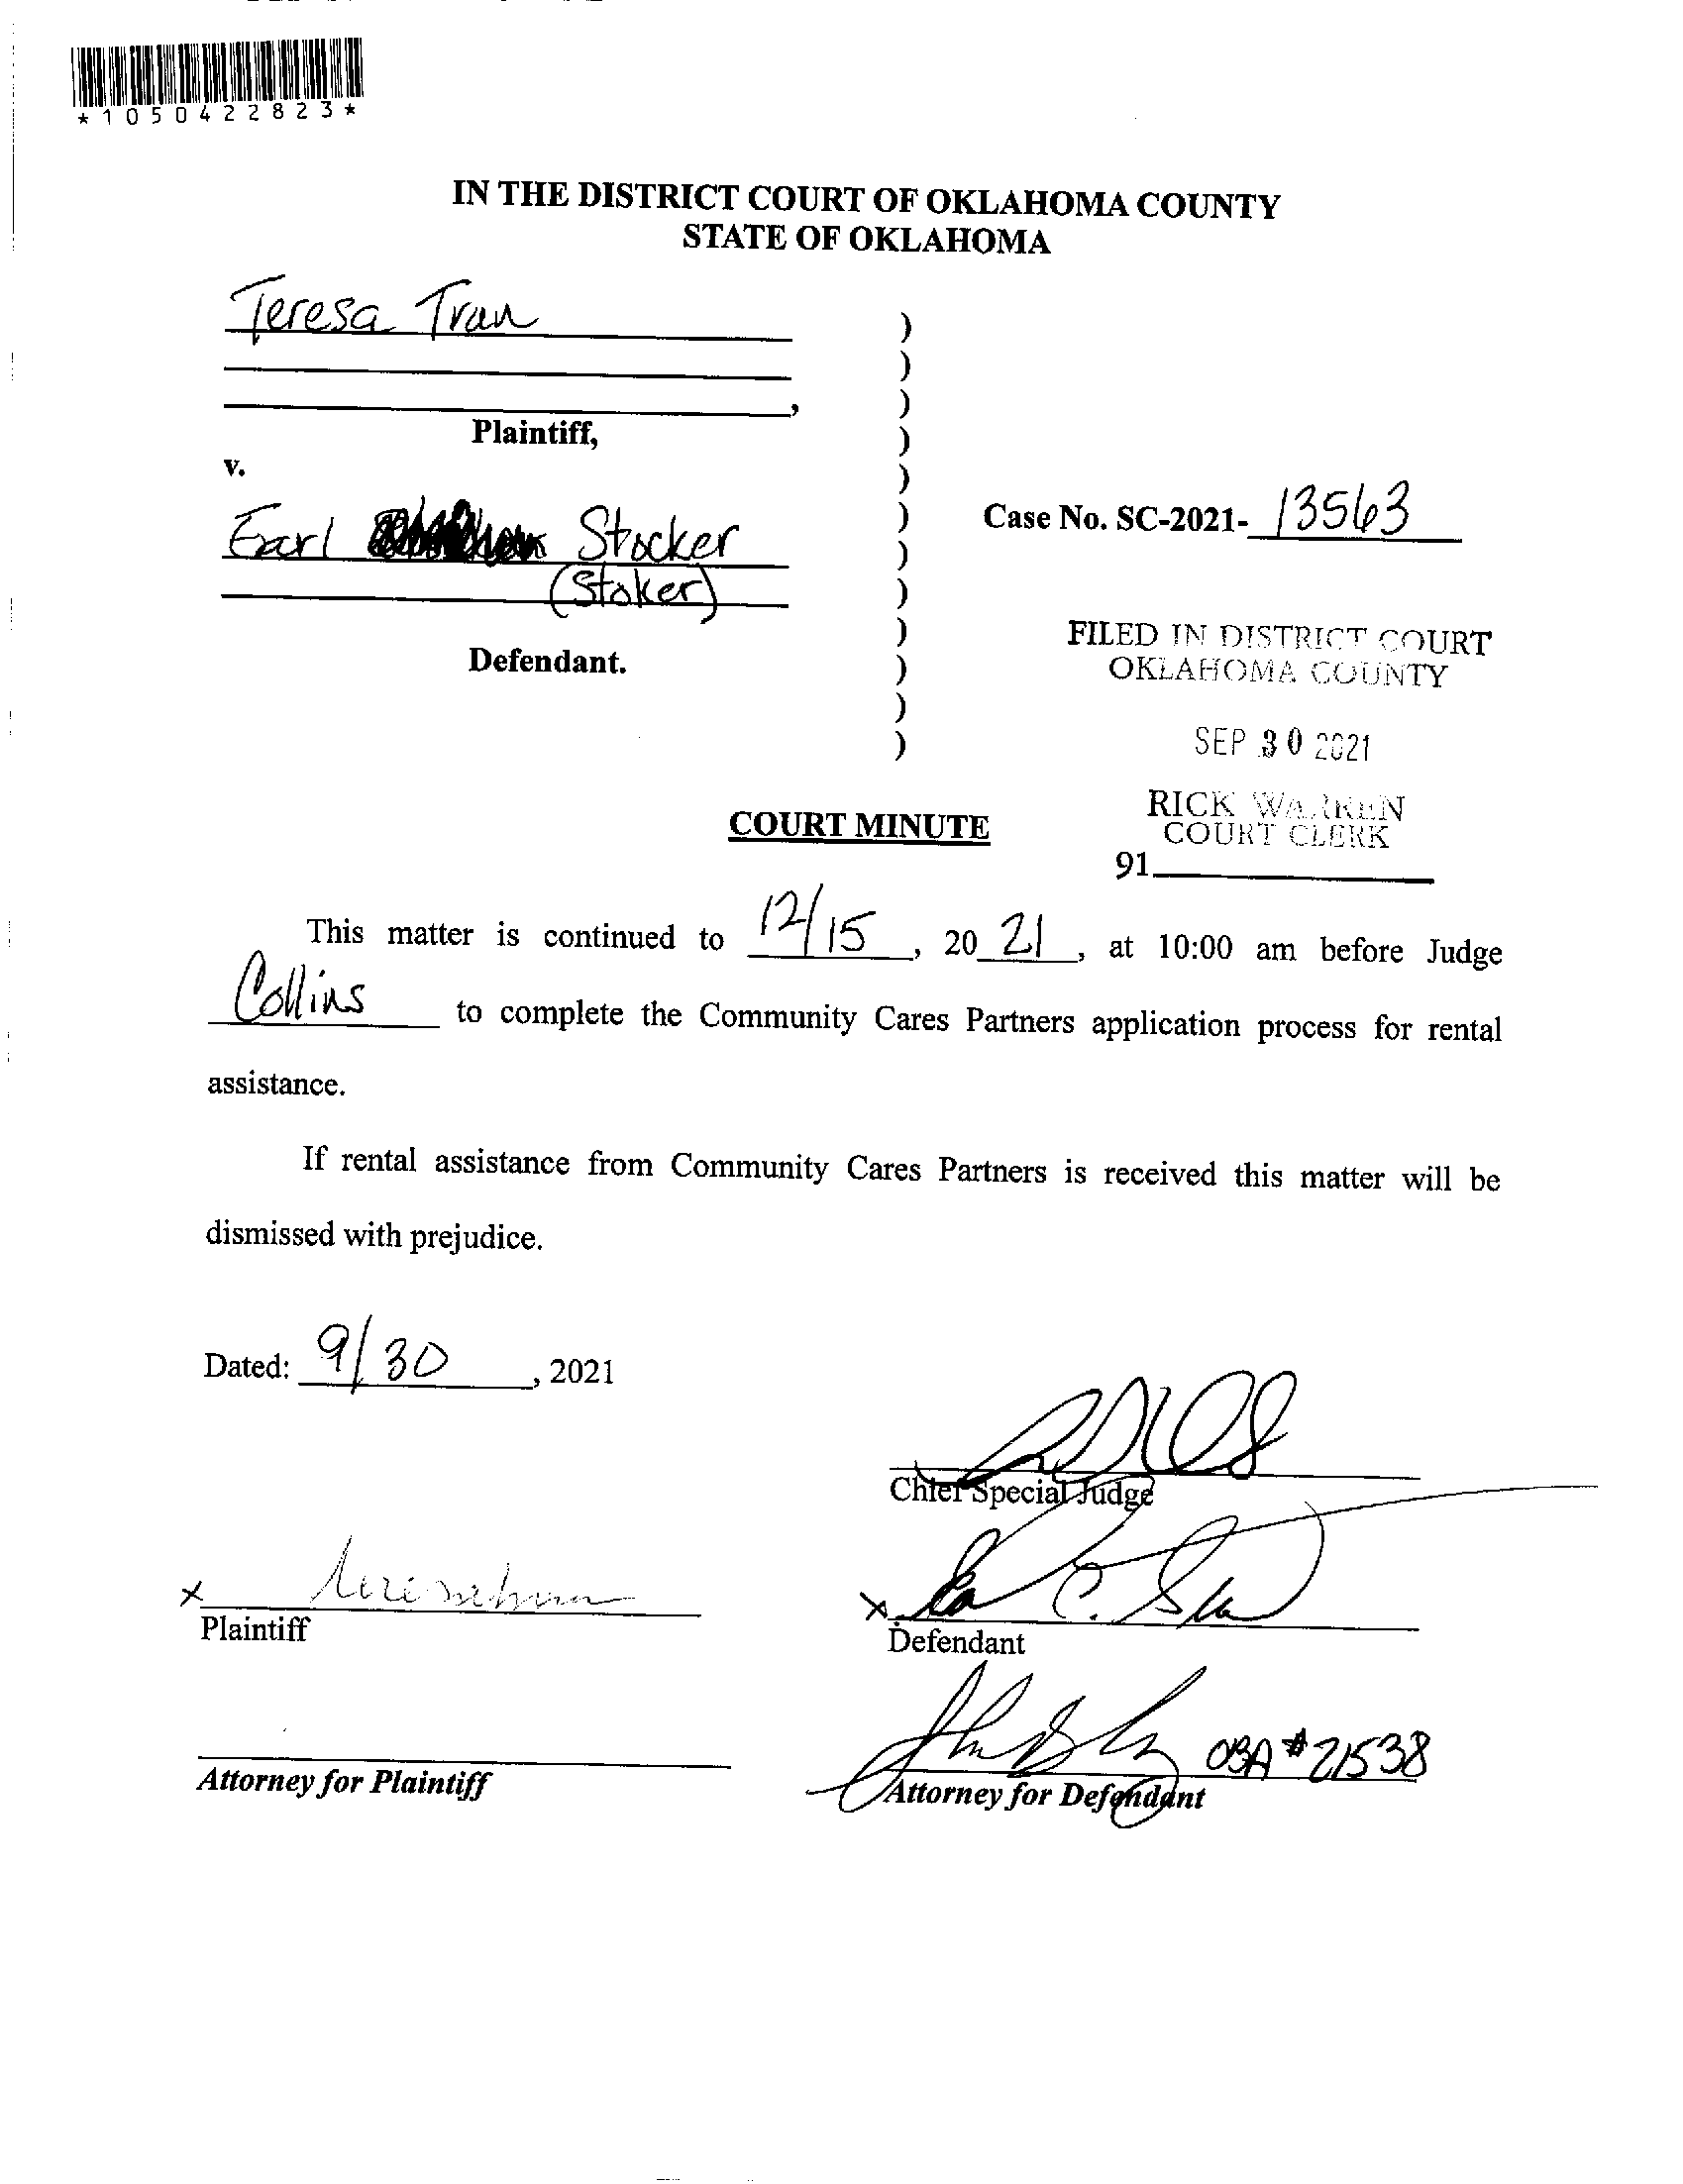 *1050422823*
IN THE DISTRICT COURT OF OKLAHOMA COUNTY
STATE OF OKLAHOMA
Teresa Tran
Plaintiff,
v.
Earl Stocker
(Stoker)
Defendant.
)
)
)
)
)
)
)
)
)
)
)
)
Case No. SC-2021- 13563
FILED IN DISTRICT COURT
OKLAHOMA COUNTY
SEP 30 2021
RICK WARREN
COURT CLERK
91
COURT MINUTE
This matter is continued to 12/15, 20 21, at 10:00 am before Judge
Collins to complete the Community Cares Partners application process for rental
assistance.
If rental assistance from Community Cares Partners is received this matter will be
dismissed with prejudice.
Dated: 9/30, 2021
Chief Special Judge
x
Plaintiff
x
Defendant
OBA #21538
Attorney for Plaintiff
Attorney for Defendant